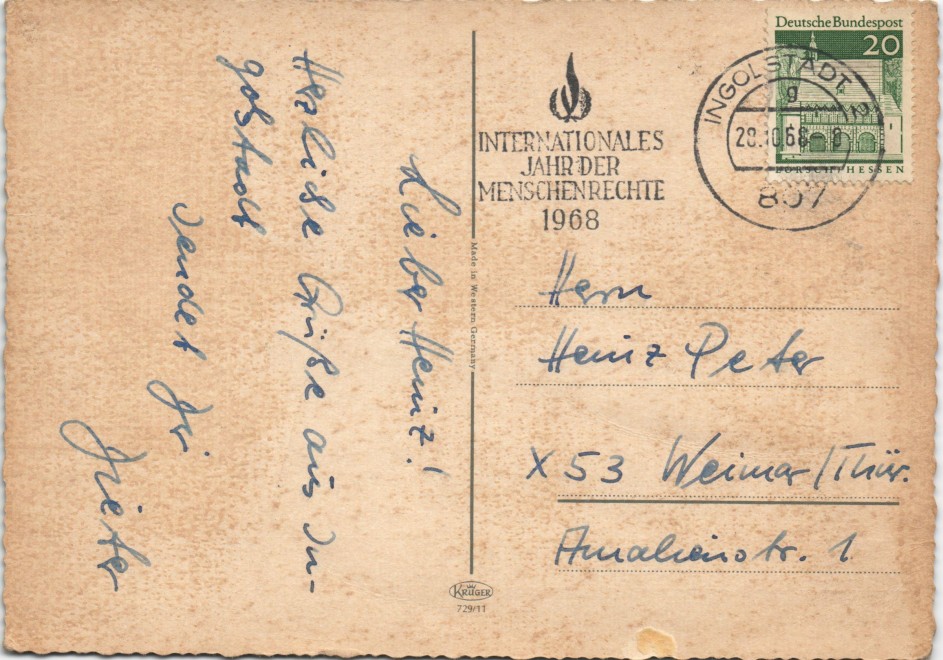 Lieber Heinz!
Herzliche Grüße aus In-
golstadt
sendet Dir
Dieter
Made in Western Germany
KRÜGER
729/11
INTERNATIONALES
JAHR DER
MENSCHENRECHTE
1968
Deutsche Bundespost
20
LORSCH/HESSEN
INGOLSTADT
g
28.10.68
807
Herrn
Heinz Peter
X 53 Weimar/Thür.
Amalienstr. 1